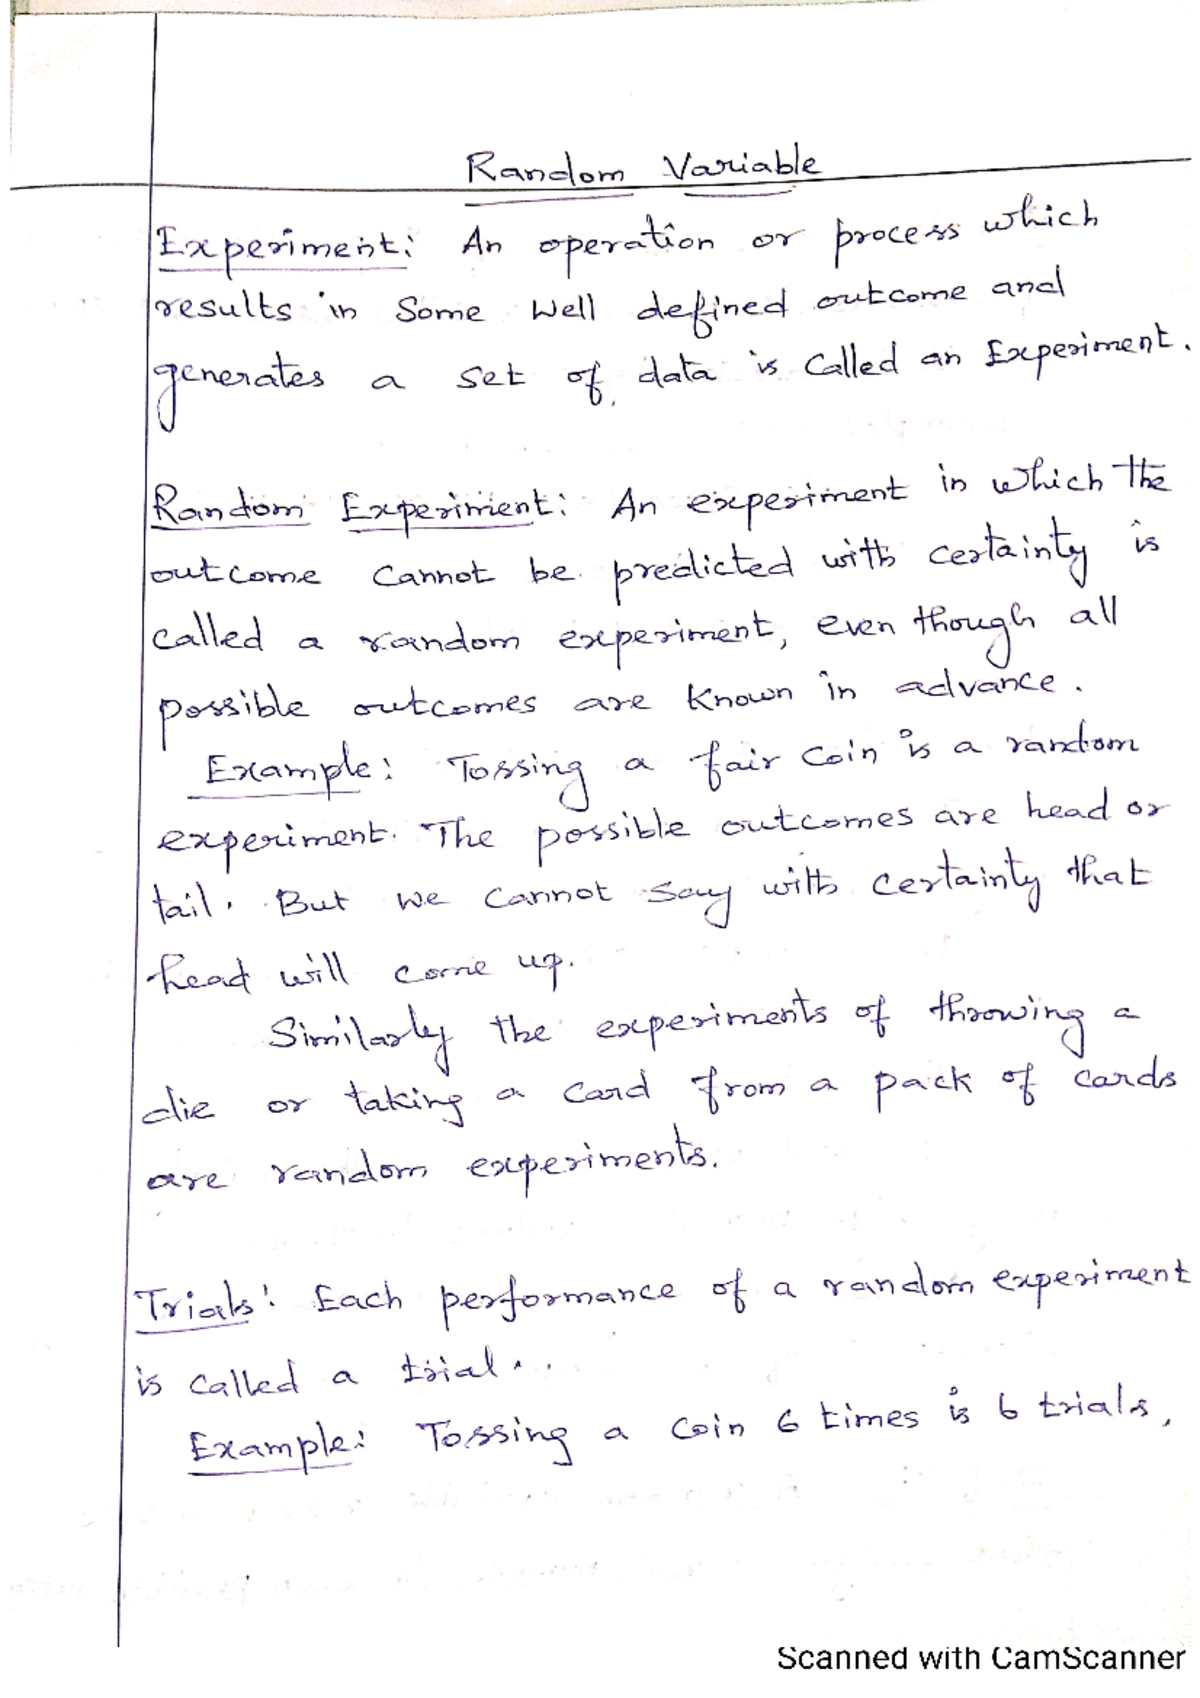 Random Variable
Experiment: An operation or process which
results in Some Well defined outcome and
generates a set of data is Called an Experiment.
Random Experiment: An experiment in which the
outcome Cannot be predicted with certainty is
called a random experiment, even though all
possible outcomes are Known in advance.
Example: Tossing a fair Coin is a random
experiment. The possible outcomes are head or
tail. But we Cannot say with certainty that
head will come up.
Similarly the experiments of throwing a
die or taking a Card from a pack of cards
are random experiments.
Trials: Each performance of a random experiment
is Called a trial.
Example: Tossing a Coin 6 times is 6 trials,
Scanned with CamScanner